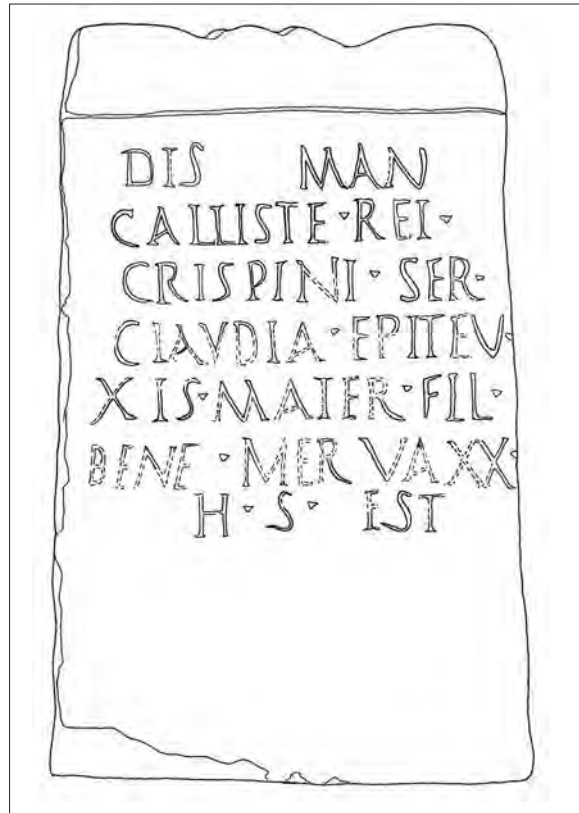 DIS MAN
CALLISTE · REI ·
CRISPINI · SER ·
CLAVDIA · EPITEV ·
XIS · MATER · FIL ·
BENE · MER VAXX ·
H · S · EST